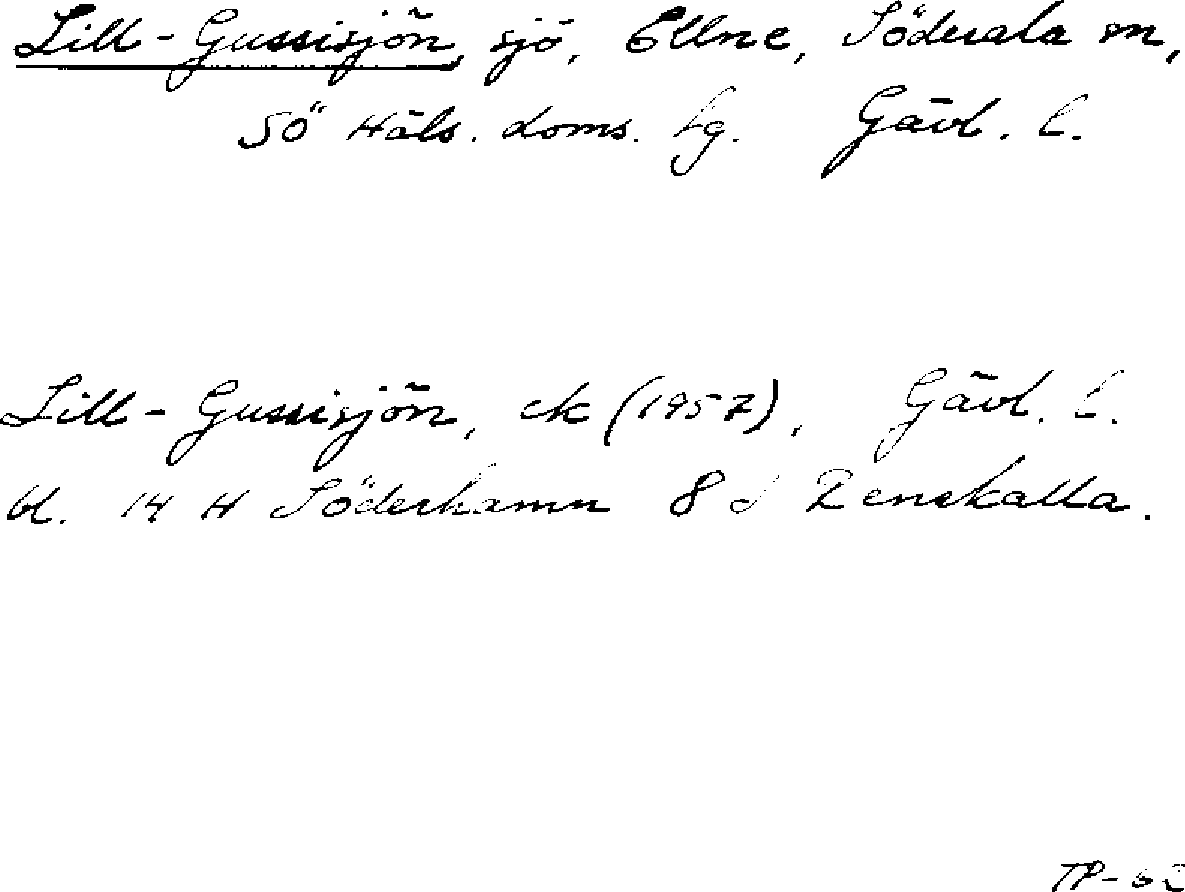 Lill-Gussisjön, sjö, Ellne, Söderala sn,
Sö Häls. doms. lg. Gävl. l.
Lill-Gussisjön, ek (1957), Gävl. l.
bl. 14 H Söderhamn 8 d Renskalla.
TP-62